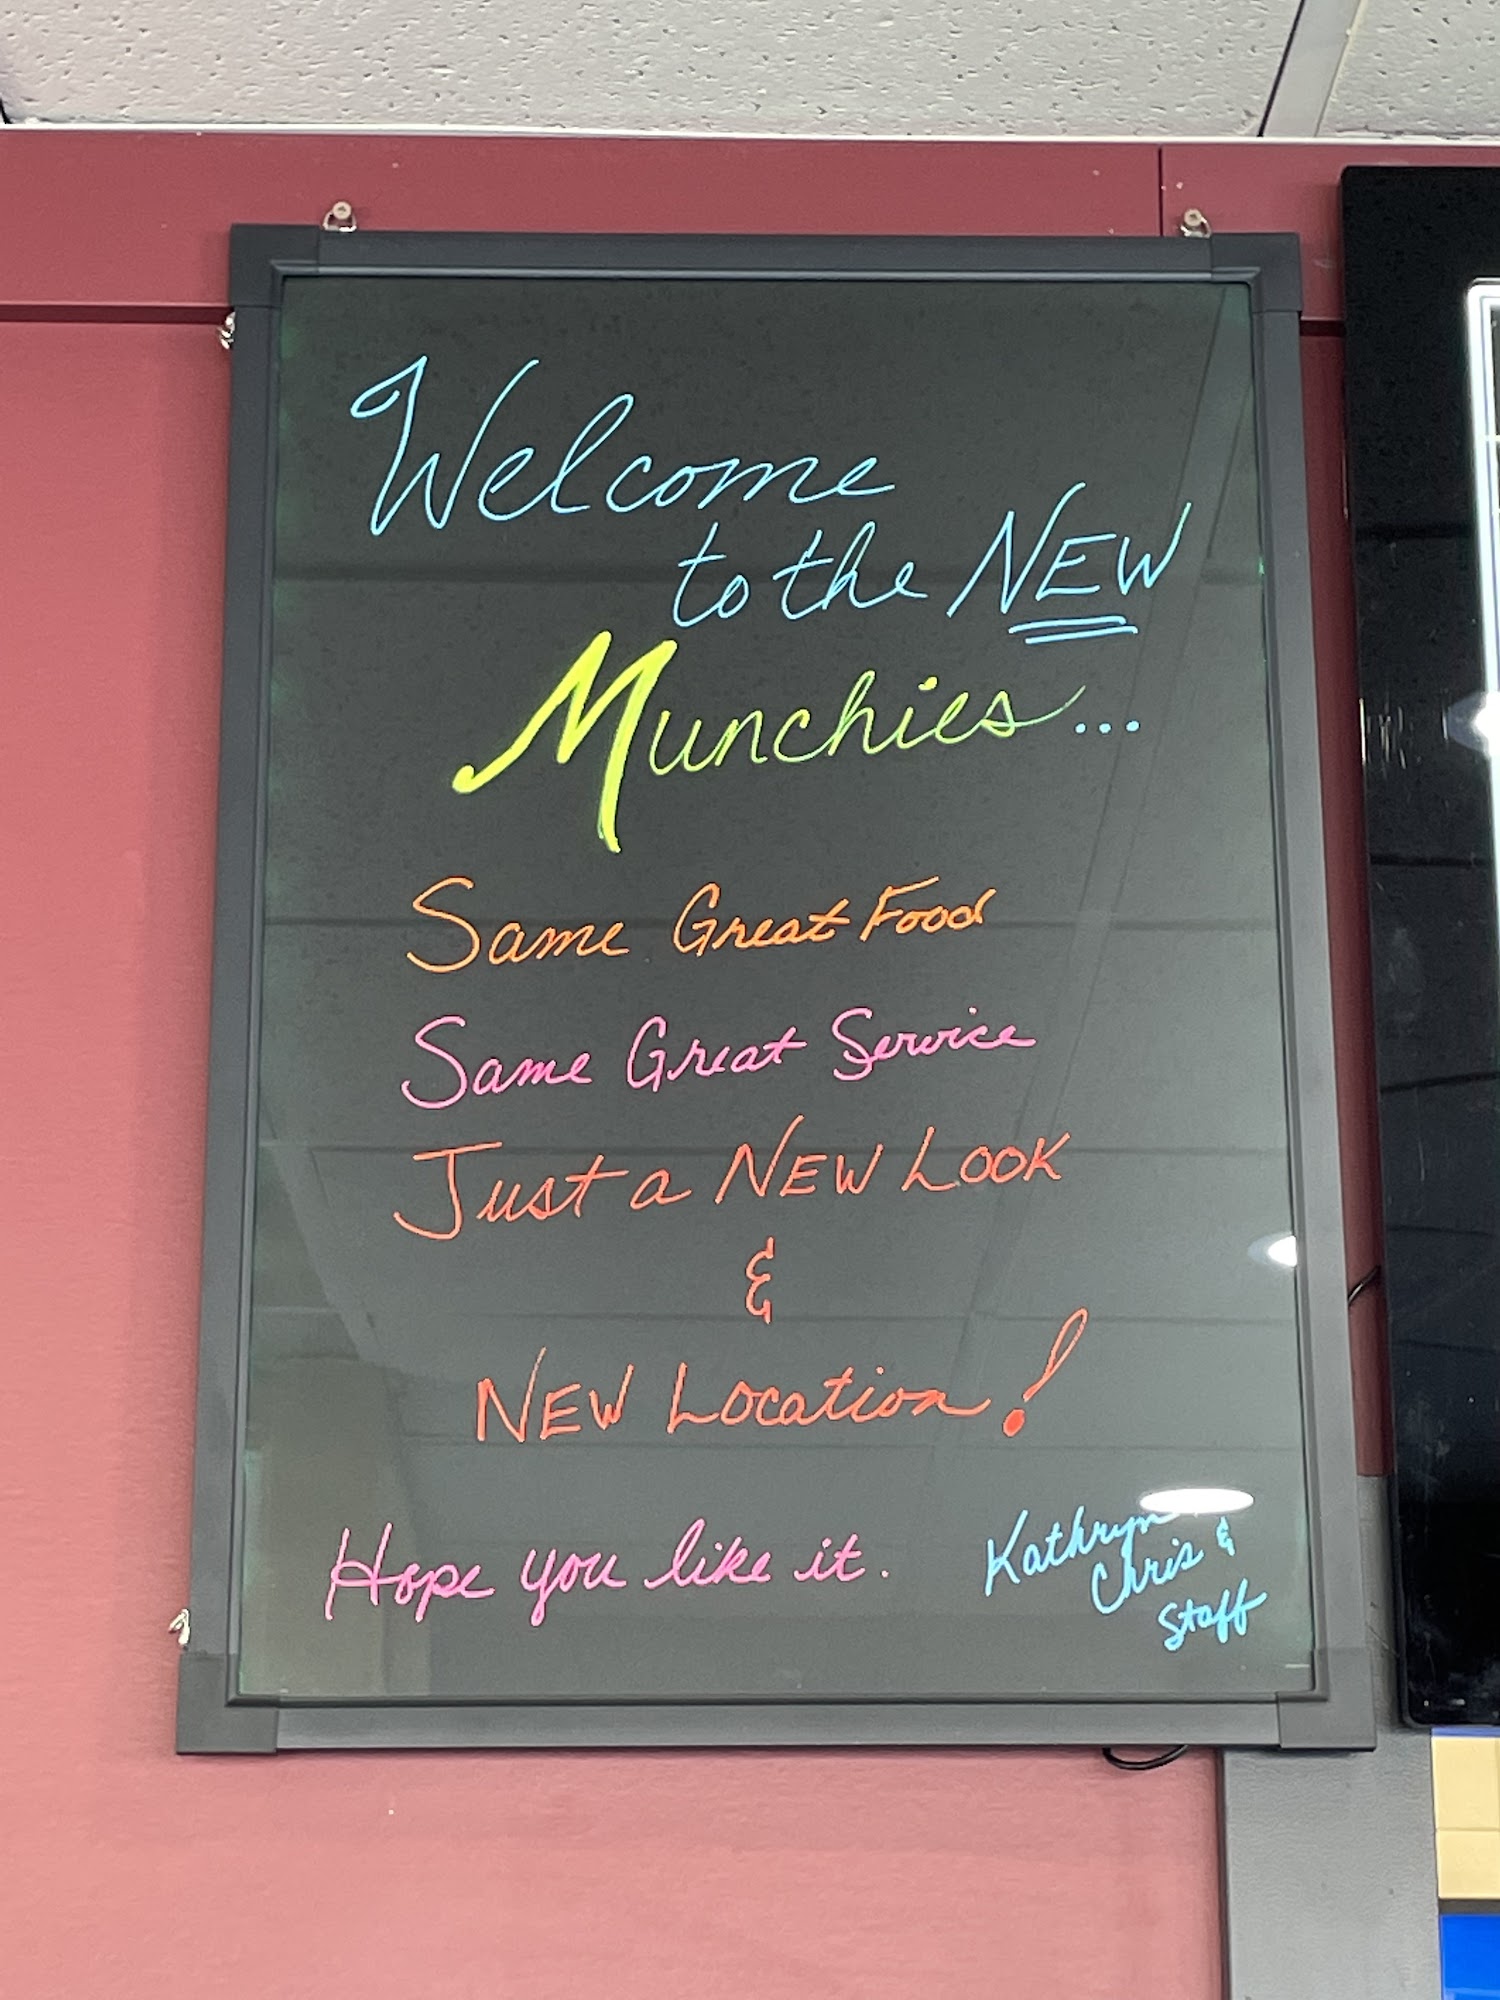 Welcome
to the NEW
Munchies...
Same Great Food
Same Great Service
Just a NEW LOOK
&
NEW Location!
Hope you like it.
Kathryn
Chris &
Staff